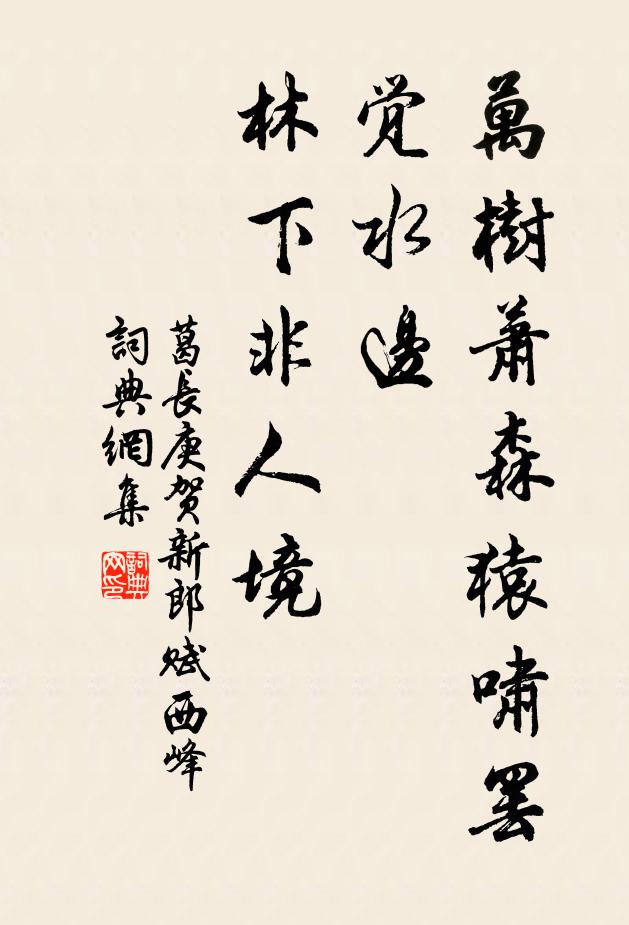 萬樹蕭森猿嘯罷
覺水邊
林下非人境
葛長庚賀新郎賦西峰
詞典網集
詞典
网印